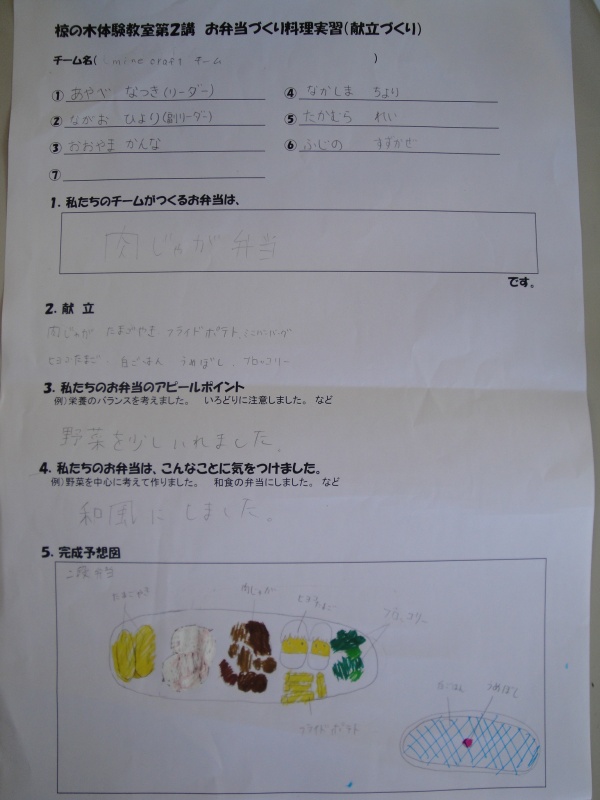 椋の木体験教室第2講 お弁当づくり料理実習(献立づくり)
チーム名( minecraft チーム )
① あやべ なつき(リーダー)
② ながお ひより(副リーダー)
③ おおやま かんな
⑦
④ なかしま ちより
⑤ たかむら れい
⑥ ふじの すずかぜ
1. 私たちのチームがつくるお弁当は、
肉じゃが弁当
です。
2. 献 立
肉じゃが たまごやき フライドポテト、ミニハンバーグ
ヒヨコたまご 白ごはん うめぼし ブロッコリー
3. 私たちのお弁当のアピールポイント
例)栄養のバランスを考えました。 いろどりに注意しました。 など
野菜を少しいれました。
4. 私たちのお弁当は、こんなことに気をつけました。
例)野菜を中心に考えて作りました。 和食の弁当にしました。 など
和風にしました。
5. 完成予想図
二段弁当
たまごやき
肉じゃが
ブロッコリー
フライドポテト
白ごはん
うめぼし